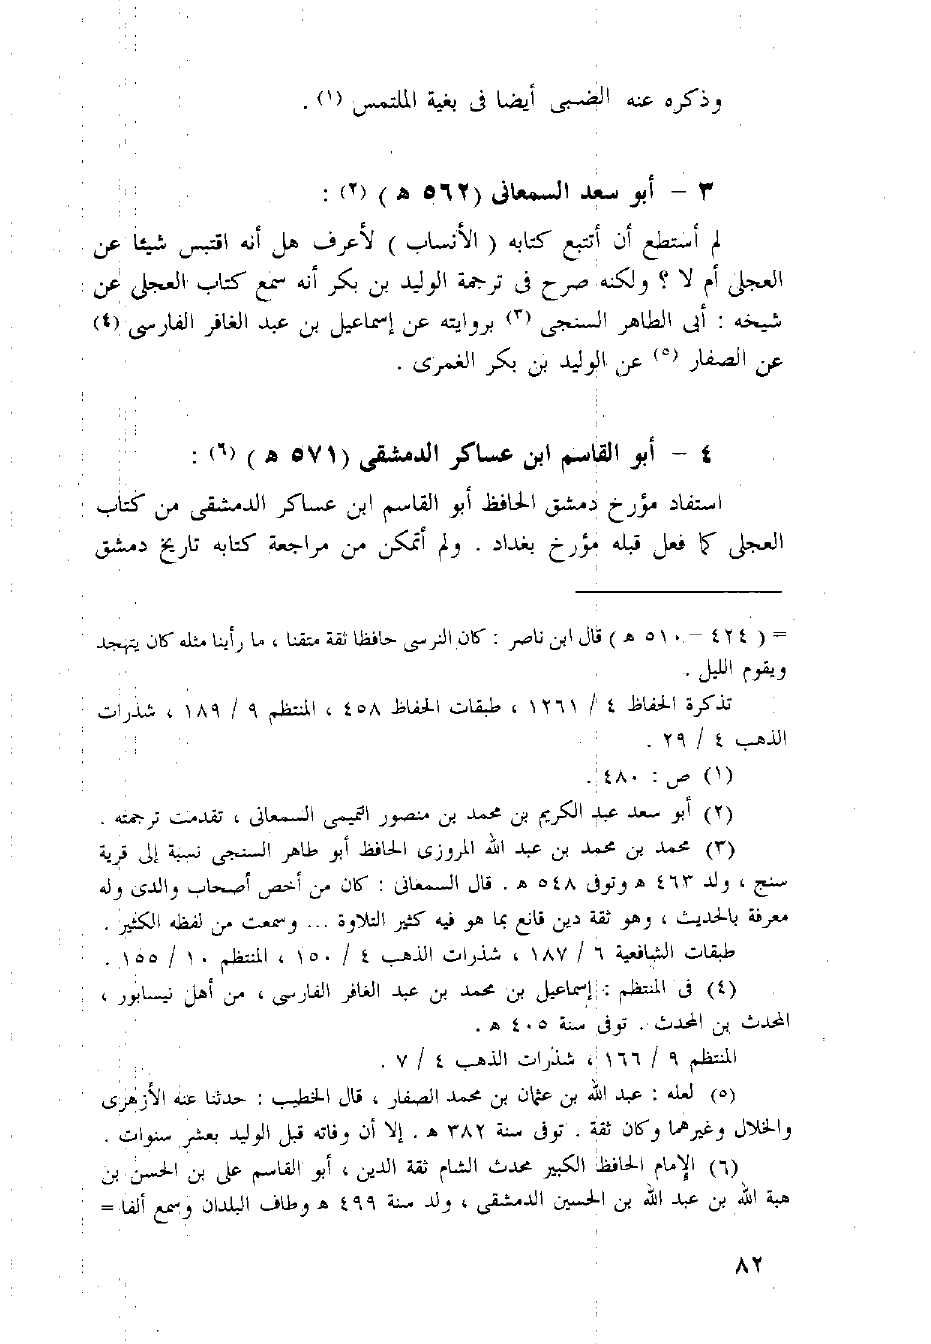 وذكره عنه الضبى أيضا فى بغية الملتمس (١) .
٣ - أبو سعد السمعانى (٥٦٢ هـ) (٢) :
لم أستطع أن أتتبع كتابه ( الأنساب ) لأعرف هل أنه اقتبس شيئا عن
العجلى أم لا ؟ ولكنه صرح فى ترجمة الوليد بن بكر أنه سمع كتاب العجلى عن
شيخه : أبى الطاهر السنجى (٣) بروايته عن إسماعيل بن عبد الغافر الفارسى (٤)
عن الصفار (٥) عن الوليد بن بكر الغمرى .
٤ - أبو القاسم ابن عساكر الدمشقى (٥٧١ هـ) (٦) :
استفاد مؤرخ دمشق الحافظ أبو القاسم ابن عساكر الدمشقى من كتاب
العجلى كما فعل قبله مؤرخ بغداد . ولم أتمكن من مراجعة كتابه تاريخ دمشق
= ( ٤٢٤ - ٥١٠ هـ ) قال ابن ناصر : كان النرسى حافظا ثقة متقنا ، ما رأينا مثله كان يتهجد
ويقوم الليل .
تذكرة الحفاظ ٤ / ١٢٦١ ، طبقات الحفاظ ٤٥٨ ، المنتظم ٩ / ١٨٩ ، شذرات
الذهب ٤ / ٢٩ .
(١) ص : ٤٨٠ .
(٢) أبو سعد عبد الكريم بن محمد بن منصور التميمى السمعانى ، تقدمت ترجمته .
(٣) محمد بن محمد بن عبد الله المروزى الحافظ أبو طاهر السنجى نسبة إلى قرية
سنج ، ولد ٤٦٣ هـ وتوفى ٥٤٨ هـ . قال السمعانى : كان من أخص أصحاب والدى وله
معرفة بالحديث ، وهو ثقة دين قانع بما هو فيه كثير التلاوة ... وسمعت من لفظه الكثير .
طبقات الشافعية ٦ / ١٨٧ ، شذرات الذهب ٤ / ١٥٠ ، المنتظم ١٠ / ١٥٥ .
(٤) فى المنتظم : إسماعيل بن محمد بن عبد الغافر الفارسى ، من أهل نيسابور ،
المحدث بن المحدث . توفى سنة ٤٠٥ هـ .
المنتظم ٩ / ١٦٦ ، شذرات الذهب ٤ / ٧ .
(٥) لعله : عبد الله بن عثمان بن محمد الصفار ، قال الخطيب : حدثنا عنه الأزهرى
والخلال وغيرهما وكان ثقة . توفى سنة ٣٨٢ هـ . إلا أن وفاته قبل الوليد بعشر سنوات .
(٦) الإمام الحافظ الكبير محدث الشام ثقة الدين ، أبو القاسم على بن الحسن بن
هبة الله بن عبد الله بن الحسين الدمشقى ، ولد سنة ٤٩٩ هـ وطاف البلدان وسمع ألفا =
٨٢